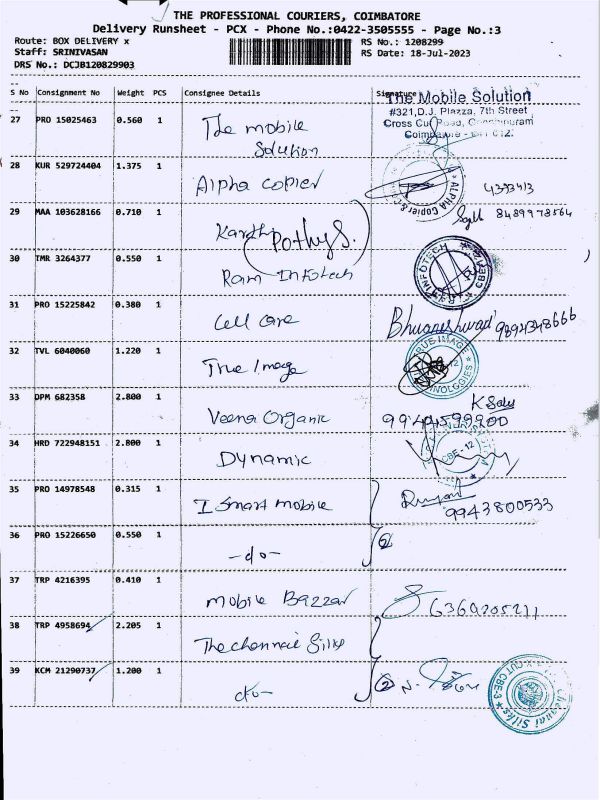 THE PROFESSIONAL COURIERS, COIMBATORE
Delivery Runsheet - PCX - Phone No.:0422-3505555 - Page No.:3
Route: BOX DELIVERY x RS No.: 1208299
Staff: SRINIVASAN RS Date: 18-Jul-2023
DRS No.: DCJB120829903
S No Consignment No Weight PCS Consignee Details Signature
The Mobile Solution
#321,D.J. Plazza, 7th Street
27 PRO 15025463 0.560 1 The mobile Solution
28 KUR 529724404 1.375 1 Alpha Copier
ALPHA Copier
29 MAA 103628166 0.710 1 Karthi (Pothys.) 8489978564
30 TMR 3264377 0.550 1 Ram Infotech
INFOTECH
31 PRO 15225842 0.380 1 Cell Care Bhuaneshwari 9894348666
32 TVL 6040060 1.220 1 True Image
TRUE IMAGE TECHNOLOGIES
33 DPM 682358 2.800 1 Veena Organic
34 HRD 722948151 2.800 1 Dynamic
CBE - 12
35 PRO 14978548 0.315 1 I Smart mobile 9943800533
36 PRO 15226650 0.550 1 -do- (2)
37 TRP 4216395 0.410 1 mobile Bazzar 6369205211
38 TRP 4958694 2.205 1 The chennai Silks
39 KCM 21290737 1.200 1 do- (2) N.
Chennai Silks